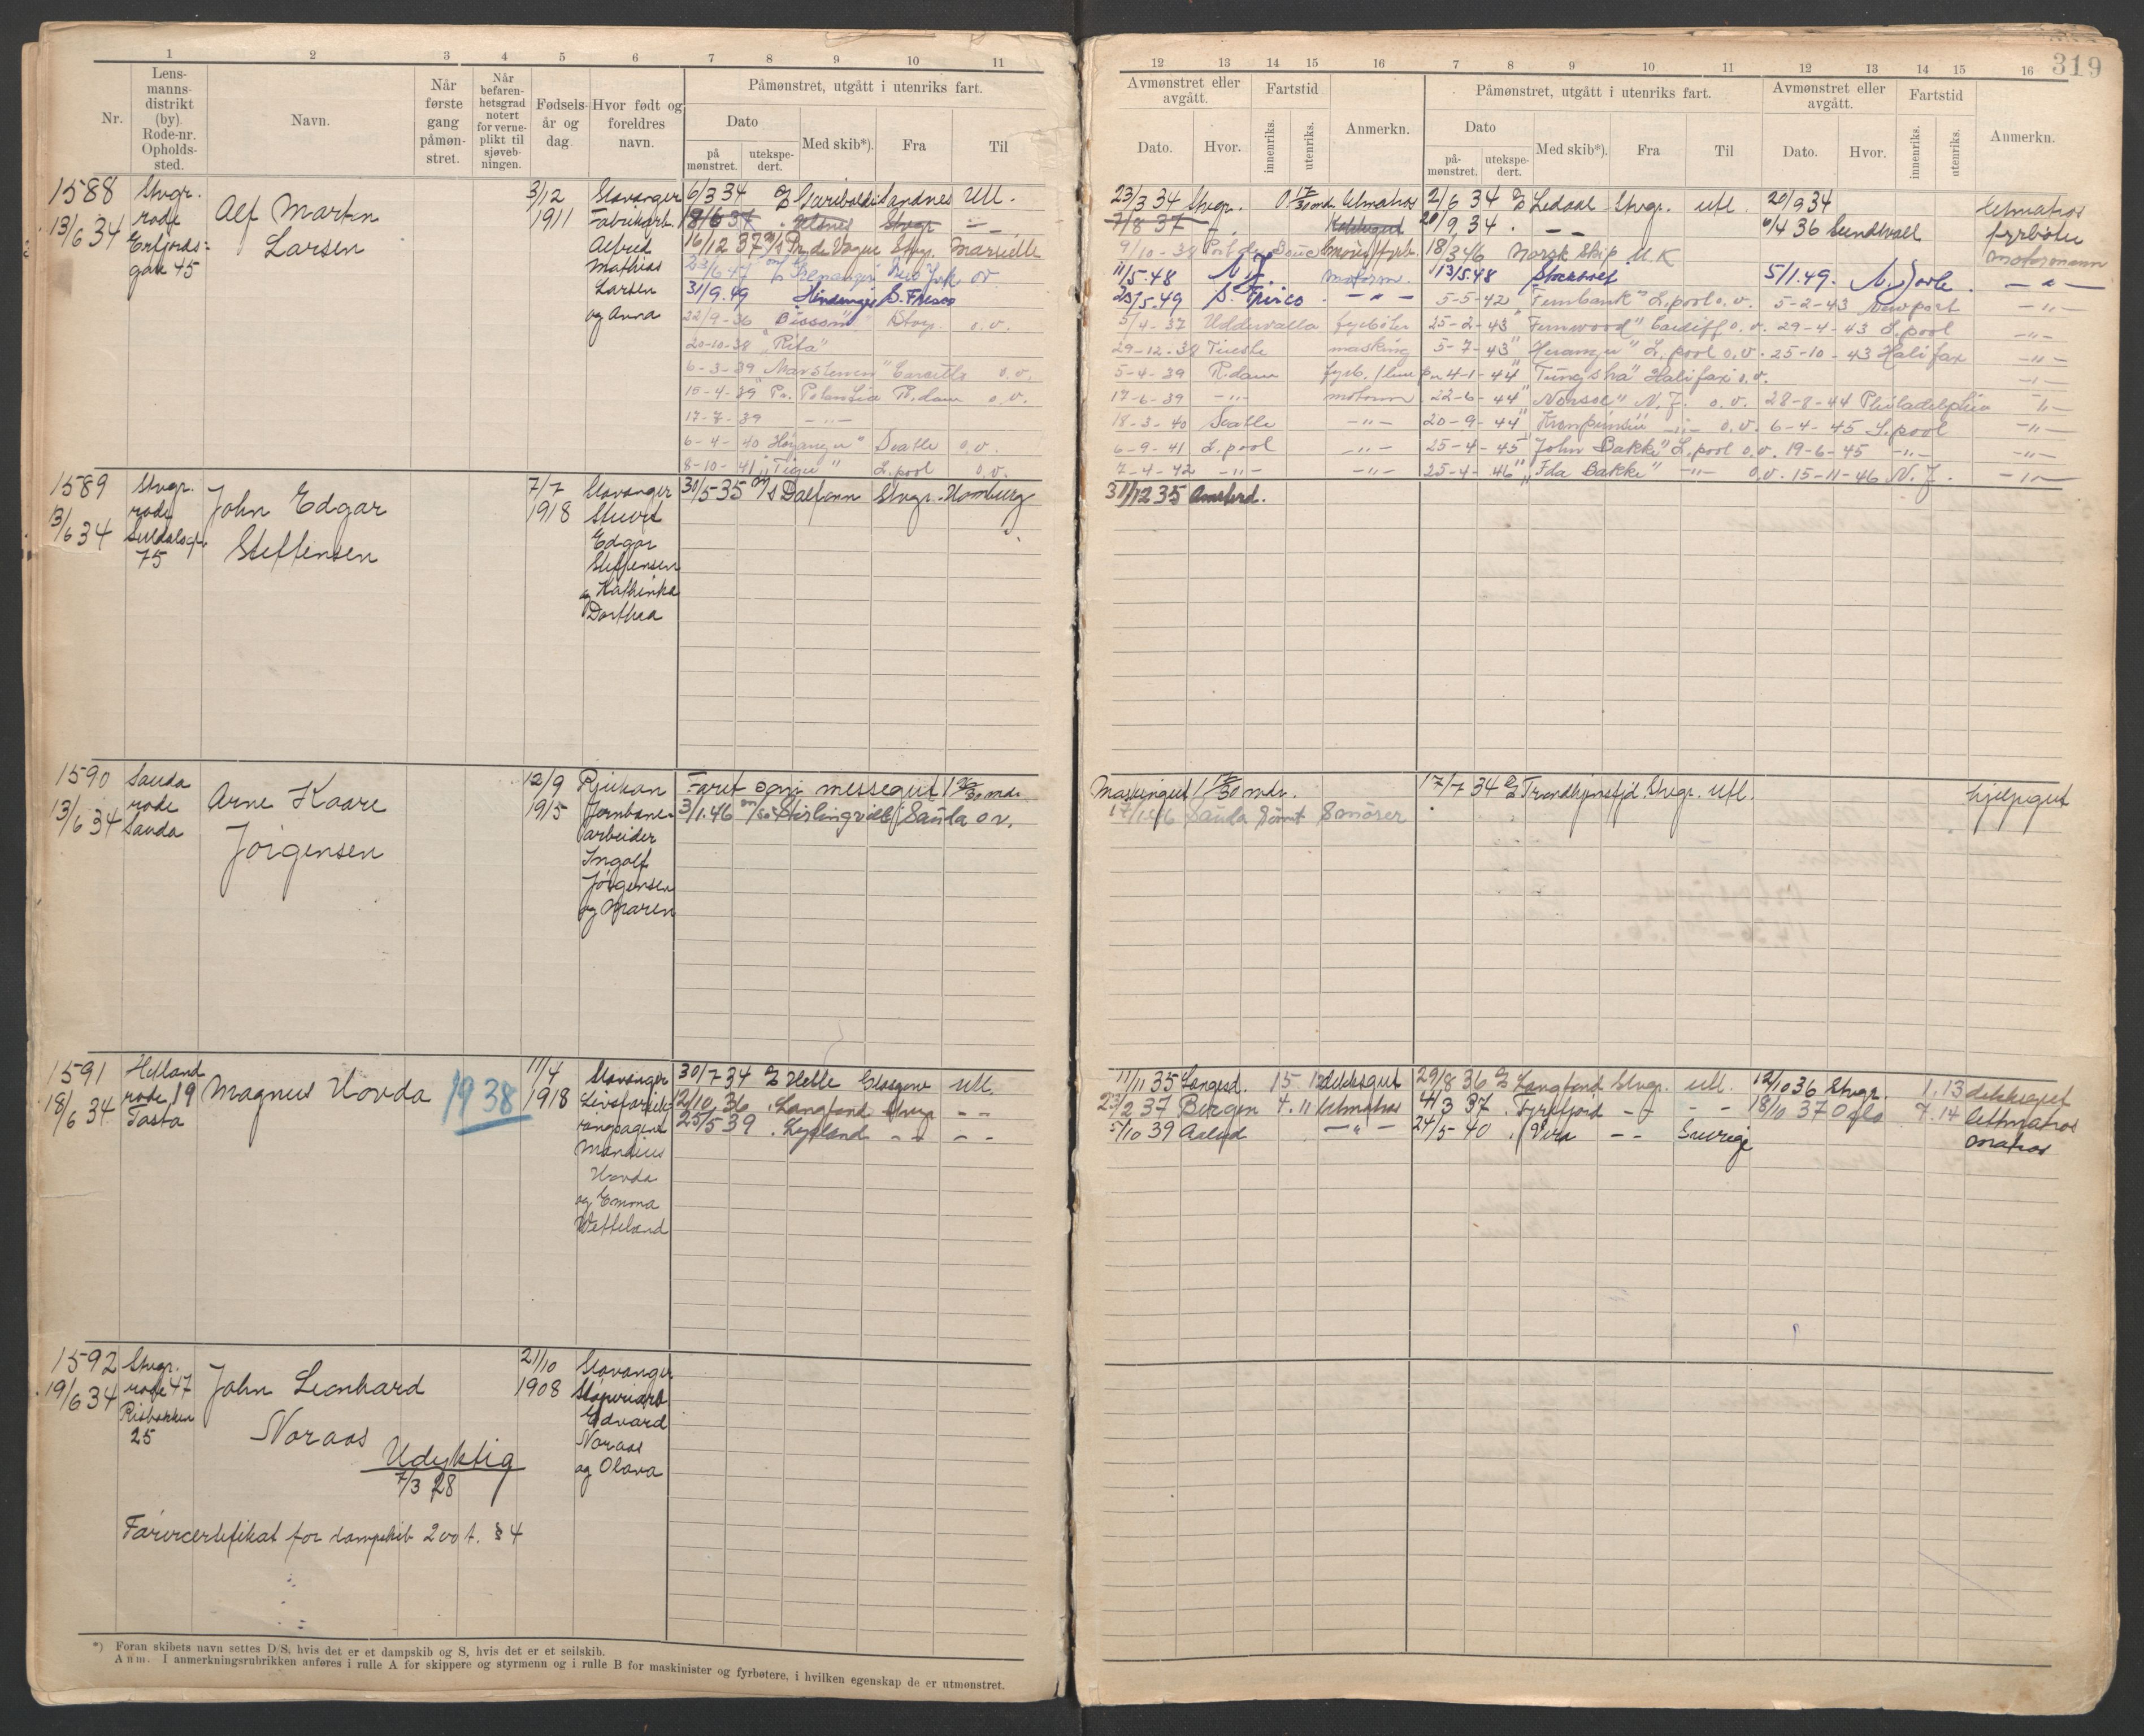 319
1 2 3 4 5 6 7 8 9 10 11
Nr.
Lens-
manns-
distrikt
(by)
Rode-nr.
Opholds-
sted.
Navn.
Når
første
gang
påmøn-
stret.
Når
befaren-
hetsgrad
notert
for verne-
plikt til
sjøveb-
ningen.
Fødsels-
år og
dag
Hvor født og
foreldres
navn.
Påmønstret, utgått i utenriks fart.
Dato
på
mønstret.
utekspe-
dert.
Med skib*).
Fra
Til
1588 Stvgr.
13/6 34 rode
Erfjords-
gate 45
Alf Martin
Larsen
3/12
1911
Stavanger
Fabrikarb.
Alfred
Mathias
Larsen
og Anna
6/3 34 Garibaldi Sandnes Utl.
18/6 37 Stvgr
16/12 37 Stvgr. Marseille
23/6 47 New York ov.
31/9.49 Hindanger S. Frisco
22/9-36 "Bisson" Stvgr. o.v.
20-10-38 "Rita"
6-3-39 Marstenen" o.v.
15-4-39 " R.dam o.v.
17-7-39 -"-
6-4-40 Høyanger" Seatle o.v.
8-10-41 "Tigre" L.pool o.v.
1589 Stvgr.
13/6 34 rode
Suldalsgt.
75
John Edgar
Steffensen
7/7
1918
Stavanger
Stuert
Edgar
Steffensen
og Kathinka
Dorthea
30/5-35 M/S Dalfonn Stvgr. Hamburg
1590 Sauda
13/6 34 rode
Sauda
Arne Kaare
Jörgensen
12/9
1915
Rjukan
Jernbane-
arbeider
Ingolf
Jörgensen
og Maren
Faret som messegut
3/1.46 Stirlingville Sauda o.v.
1591 Hetland
18/6 34 rode 19
Tasta
Magnus Hovda
1938
11/4
1918
Stavanger
Livsforsik-
ringsagent
Mandius
Hovda
og Emma
Wetteland
30/7 34 Helle Glasgow utl.
12/10 36 . Langfond Stvgr - -
25/5 39 . Lysland - - - -
1592 Stvgr.
19/6 34 rode 47
Risbakken
25
John Leonhard
Noraas
Udyktig
7/3 28
Farvcertifikat for dampskib 200 t. § 4
21/10
1908
Stavanger
Edvard
Noraas
og Olava
*) Foran skibets navn settes D/S, hvis det er et dampskib og S, hvis det er et seilskib.
Anm. I anmerkningsrubrikken anføres i rulle A for skippere og styrmenn og i rulle B for maskinister og fyrbøtere, i hvilken egenskap de er utmønstret.
12 13 14 15 16 7 8 9 10 11 12 13 14 15 16
Avmønstret eller
avgått.
Dato. Hvor.
Fartstid
innenriks.
utenriks.
Anmerkn.
Påmønstret, utgått i utenriks fart.
Dato
på-
mønstret.
utekspe-
dert.
Med skib*). Fra Til
Avmønstret eller
avgått.
Dato. Hvor.
Fartstid
innenriks.
utenriks.
Anmerkn.
23/3 34 Stvgr. 0 17/30 mdr. letmatros 2/6 34 Ledaal Stvgr. utl. 20/9 34 letmatros
7/8 37 20/9, 34 . - - 6/4 36 Sundsvall fyrböter
9/10-38 18/3 46 Norsk Skip U.K motormann
11/5.48 N.J. motorm. 13/5.48 5/1.49. - " -
25/5.49 S. Frisco - " - 5-5-42 "Fernbank" L.pool o.v. 5-2-43 Newport -"-
5/4-37 Uddevalla fyrböter 25-2-43 "Fernwood" Cardiff o.v. 29-4-43 L.pool -"-
29-12-38 Trieste 5-7-43 " L.pool o.v. 25-10-43 Halifax -"-
5-4-39 R.dam 4-1-44 "Tungsha" Halifax o.v. -"-
17-6-39 -"- motorm 22-6-44 "Norsol" N.J. o.v. 28-8-44 Philadelphia -"-
18-3-40 Seatle -"- 20-9-44 " -"- o.v. 6-4-45 L.pool -"-
6-9-41 L.pool -"- 25-4-45 "John Bakke" L.pool o.v. 19-6-45 -"- -"-
7-4-42 -"- -"- 25-4-46 "Ida Bakke" -"- o.v. 15-11-46 N.J. -"-
31/12 35 Amsterd.
Maskingut 1 17/30 mdr. 17/7 34 Trondhjemsfjd. Stvgr. utl. hjelpegut
17/1.46 Sauda Smörer
11/11 35 Langesd. 15. dekksgut 29/8 36 Langfond Stvgr. utl. 12/10 36 Stvgr. 1.13 dekksgut
2 37 Bergen 4.11 letmatros 4/3 37 . Fyrefjord - - - 18/10 37 Oslo 7.14 lettmatros
/10 39 Aalesd - " - 24/5-40 . Vira - - Sverige matros